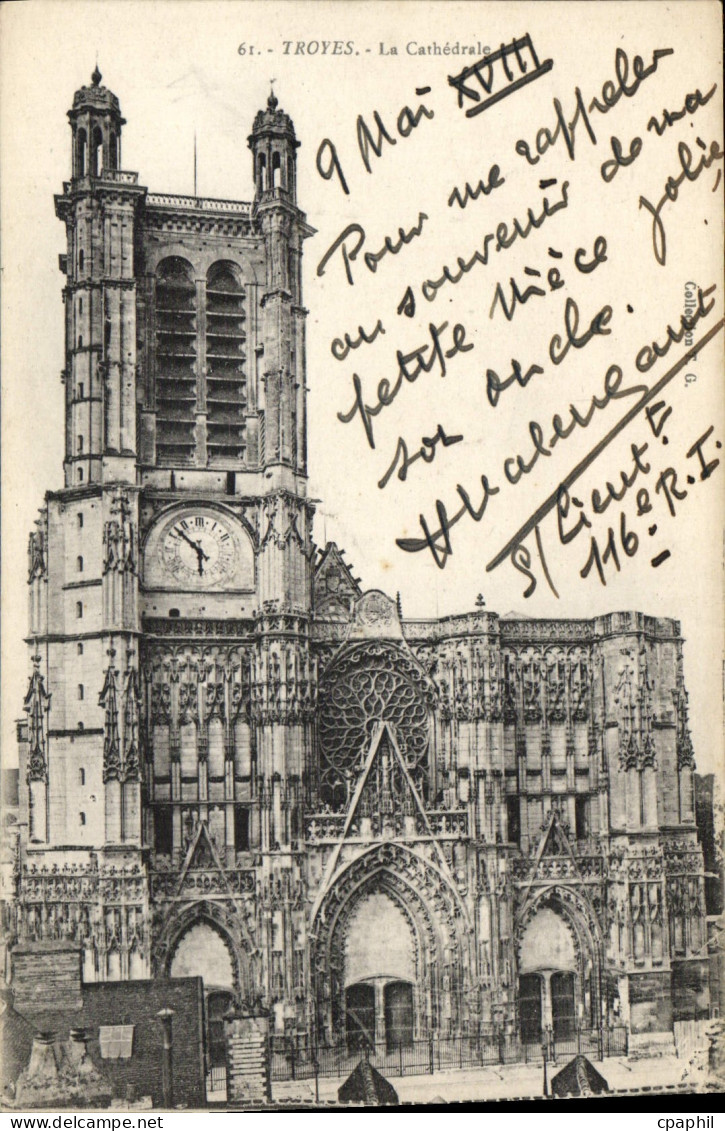 61. - TROYES. - La Cathédrale
9 Mai XVIII
Pour me rappeler
au souvenir de ma
petite nièce jolie,
son oncle.
S/Lieut.t
116e R.I.
Collection T. G.
www.cpaphil.com